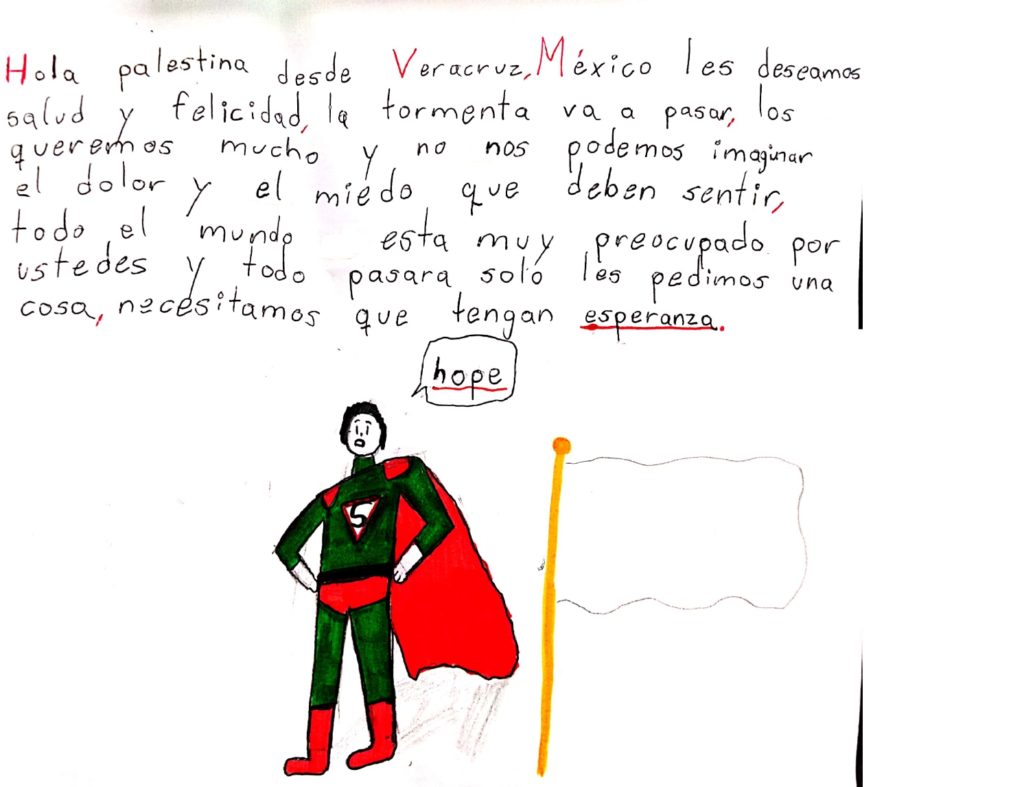 Hola palestina desde Veracruz, México les deseamos
salud y felicidad, la tormenta va a pasar, los
queremos mucho y no nos podemos imaginar
el dolor y el miedo que deben sentir,
todo el mundo esta muy preocupado por
ustedes y todo pasara solo les pedimos una
cosa, necesitamos que tengan esperanza.
hope
S